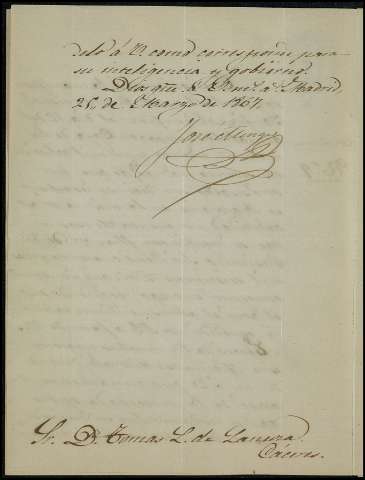 á V. como corresponde para
su inteligencia y gobierno.
Dios gue. á V. Madrid,
25 de Marzo de 1867.
José
Sr. D. Tomas L. de
Cáceres.